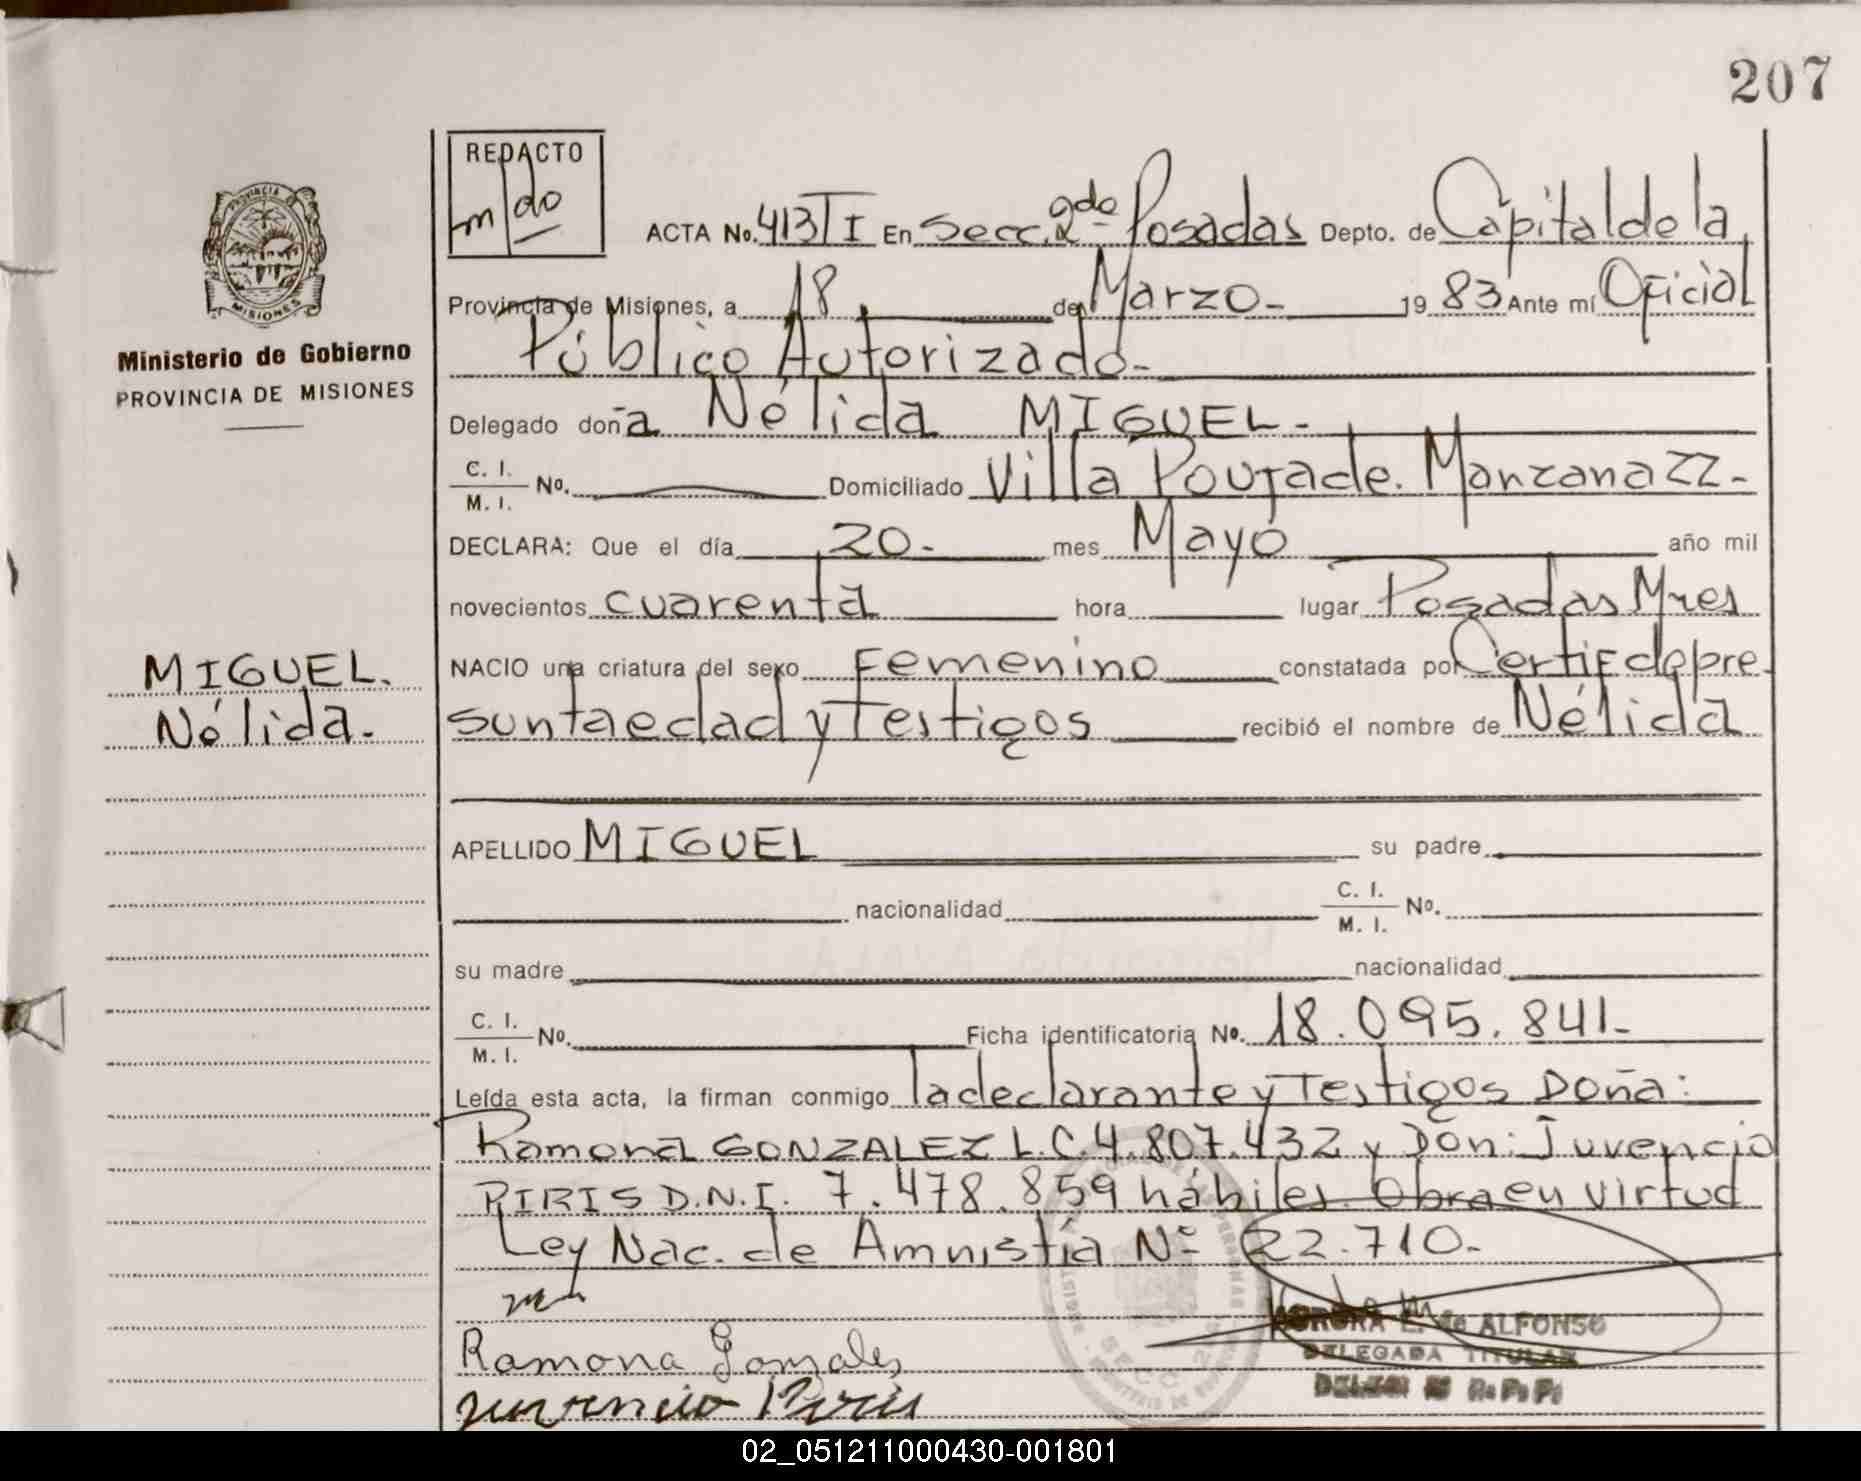 207
REDACTO
PROVINCIA
MISIONES
Ministerio de Gobierno
PROVINCIA DE MISIONES
ACTA No. 413 T I En Secc. 2da Posadas Depto. de Capital de la
Provincia de Misiones, a 18 de Marzo - 19 83 Ante mí Oficial
Público Autorizado -
Delegado doña Nélida MIGUEL -
C. I.
M. I. No. Domiciliado Villa Poujade. Manzana ZZ -
DECLARA: Que el día 20 - mes Mayo año mil
novecientos cuarenta hora lugar Posadas Mnes
NACIO una criatura del sexo Femenino constatada por Certif de pre
sunta edad y Testigos recibió el nombre de Nélida
MIGUEL.
Nélida -
APELLIDO MIGUEL su padre
nacionalidad C. I.
M. I. No.
su madre nacionalidad
C. I.
M. I. No. Ficha identificatoria No. 18.095.841 -
Leída esta acta, la firman conmigo la declarante y Testigos Doña:
Ramona GONZALEZ L.C. 4.807.432 y Don: Juvencio
PIRIS D.N.I. 7.478.859 hábiles. Obra en virtud
Ley Nac. de Amnistía Nº 22.710 -
E. de ALFONSO
DELEGADA TITULAR
Ramona Gonzales
Juvencio Piris
02_051211000430-001801